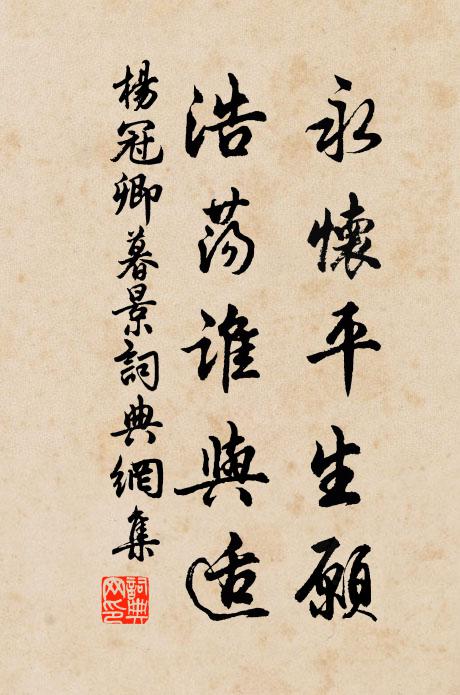 永懷平生願
浩蕩誰與適
楊冠卿暮景詞典網集
詞典網印